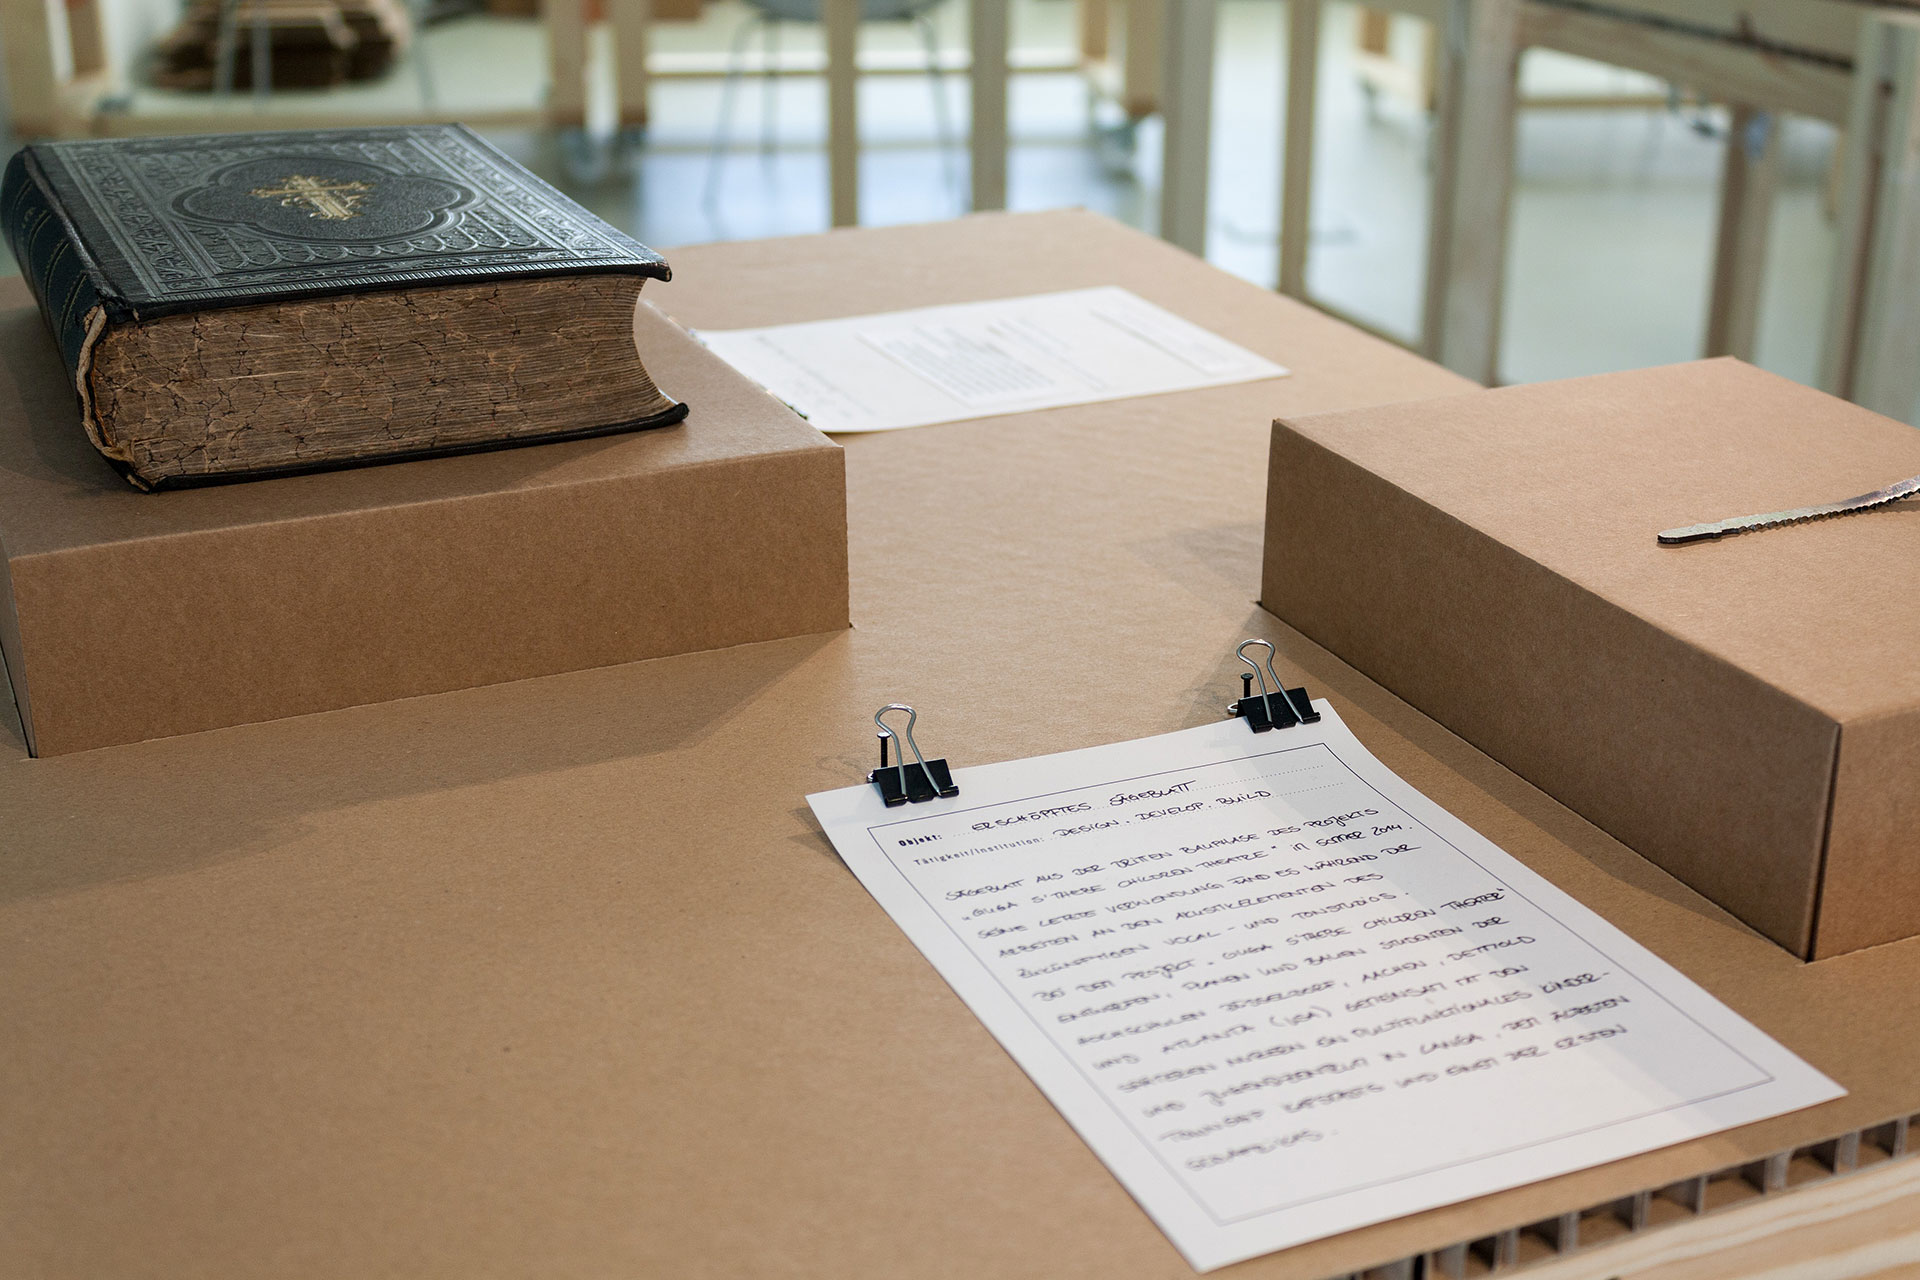 Objekt: ERSCHÖPFTES SÄGEBLATT
Tätigkeit/Institution: DESIGN, DEVELOP, BUILD
SÄGEBLATT AUS DER DRITTEN BAUPHASE DES PROJEKTS
„GUGA S'THEBE CHILDREN THEATRE" IM SOMMER 2014.
SEINE LETZTE VERWENDUNG FAND ES WÄHREND DER
ARBEITEN AN DEN AKUSTIKELEMENTEN DES
ZUKÜNFTIGEN VOCAL- UND TONSTUDIOS.
BEI DEM PROJEKT „GUGA S'THEBE CHILDREN THEATER"
ENTWERFEN, PLANEN UND BAUEN STUDENTEN DER
HOCHSCHULEN DÜSSELDORF, AACHEN, DETMOLD
UND ATLANTA (USA) GEMEINSAM MIT DEN
SPÄTEREN NUTZERN EIN MULTIFUNKTIONALES KINDER-
UND JUGENDZENTRUM IN LANGA, DEM ÄLTESTEN
TOWNSHIP KAPSTADTS UND EINST DER ERSTEN